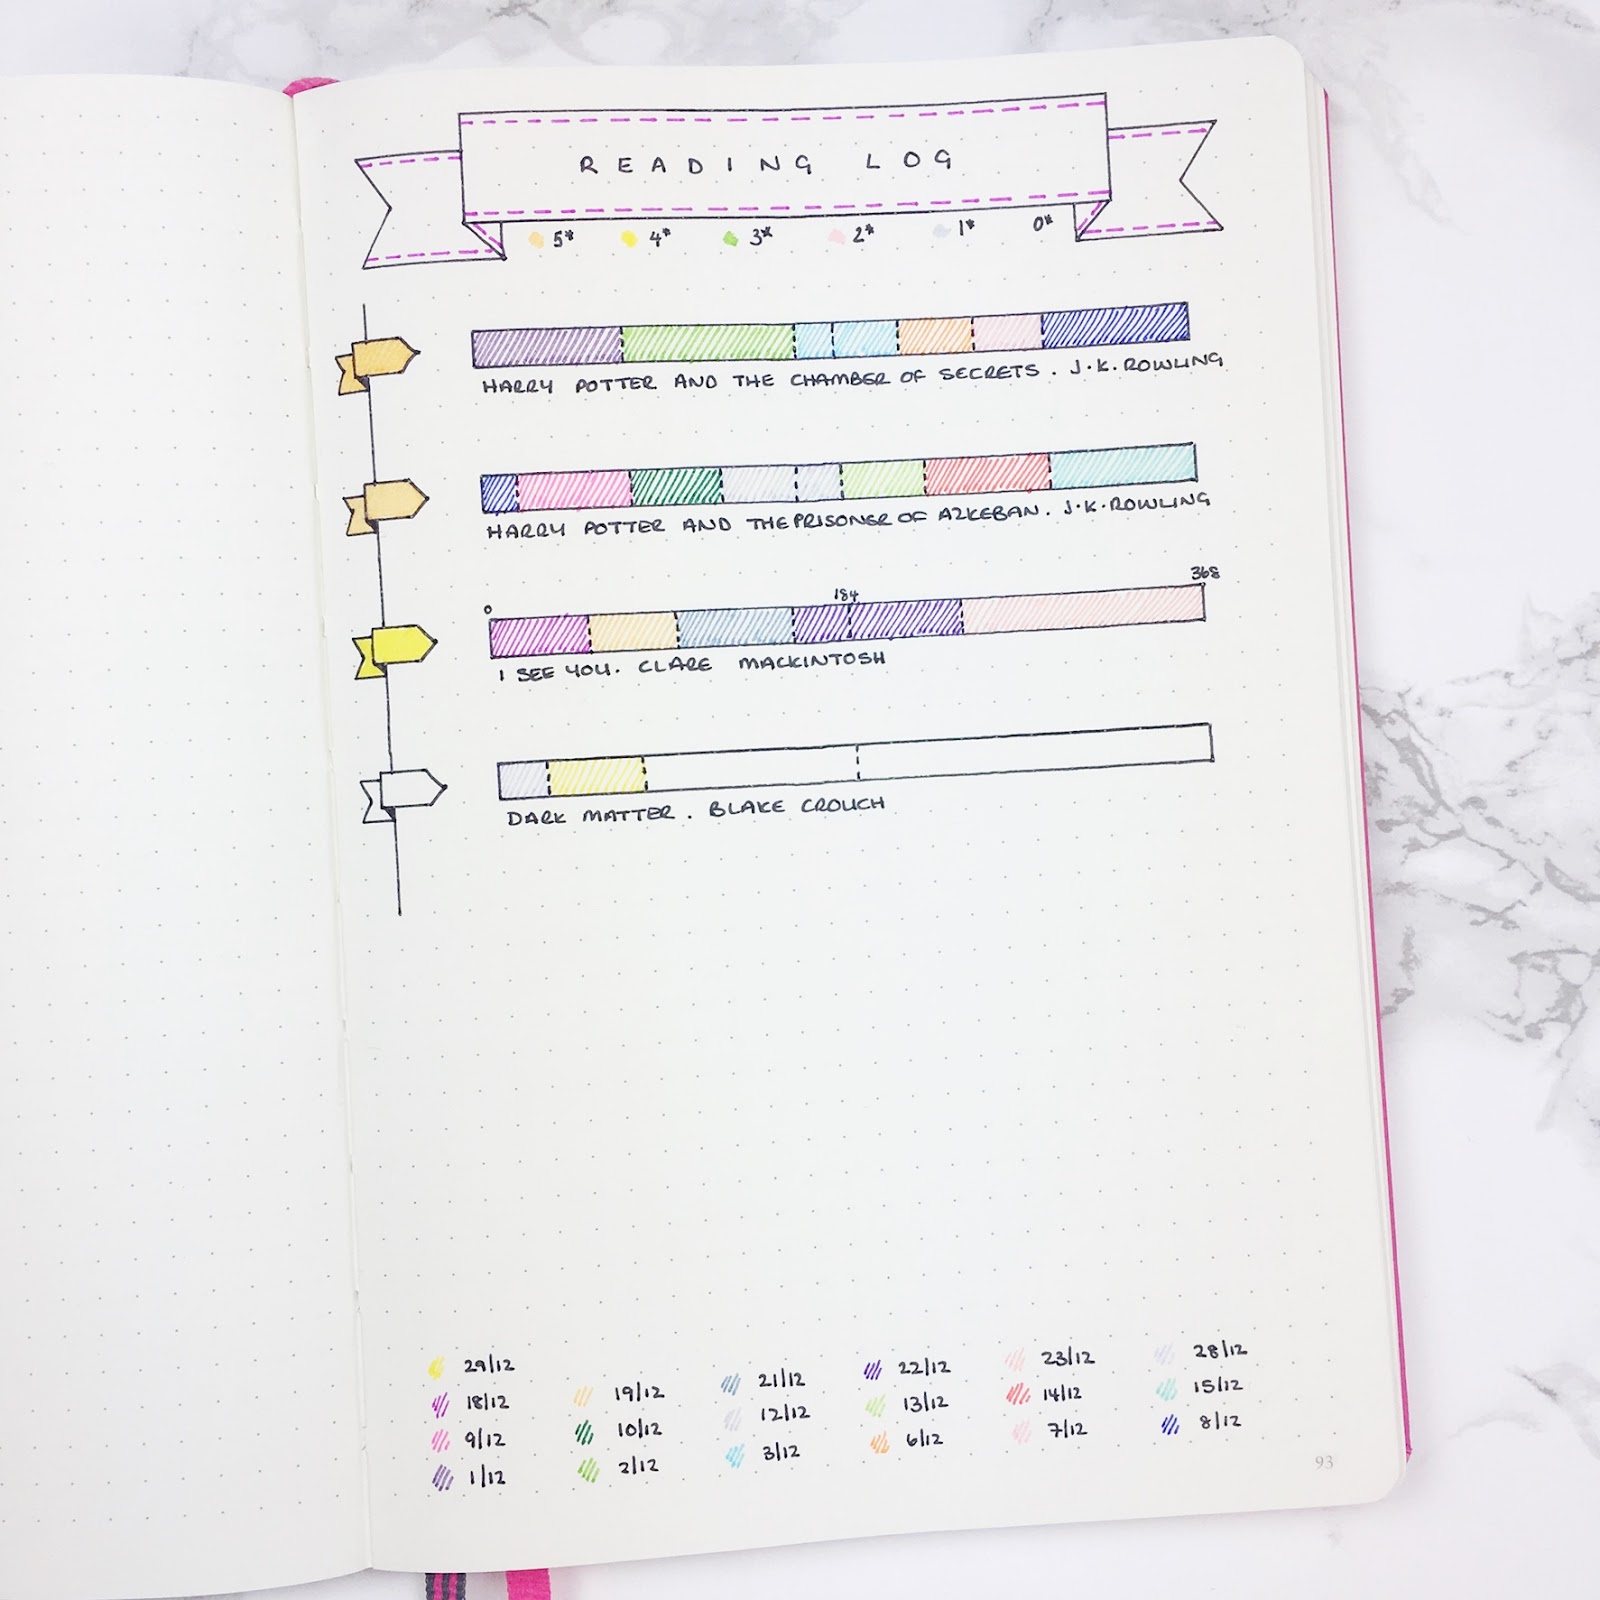 READING LOG
5* 4* 3* 2* 1* 0*
HARRY POTTER AND THE CHAMBER OF SECRETS . J.K.ROWLING
HARRY POTTER AND THE PRISONER OF AZKEBAN . J.K.ROWLING
0 184 368
I SEE YOU. CLARE MACKINTOSH
DARK MATTER . BLAKE CROUCH
29/12 21/12 22/12 23/12 28/12
18/12 19/12 12/12 13/12 14/12 15/12
9/12 10/12 3/12 6/12 7/12 8/12
1/12 2/12
93